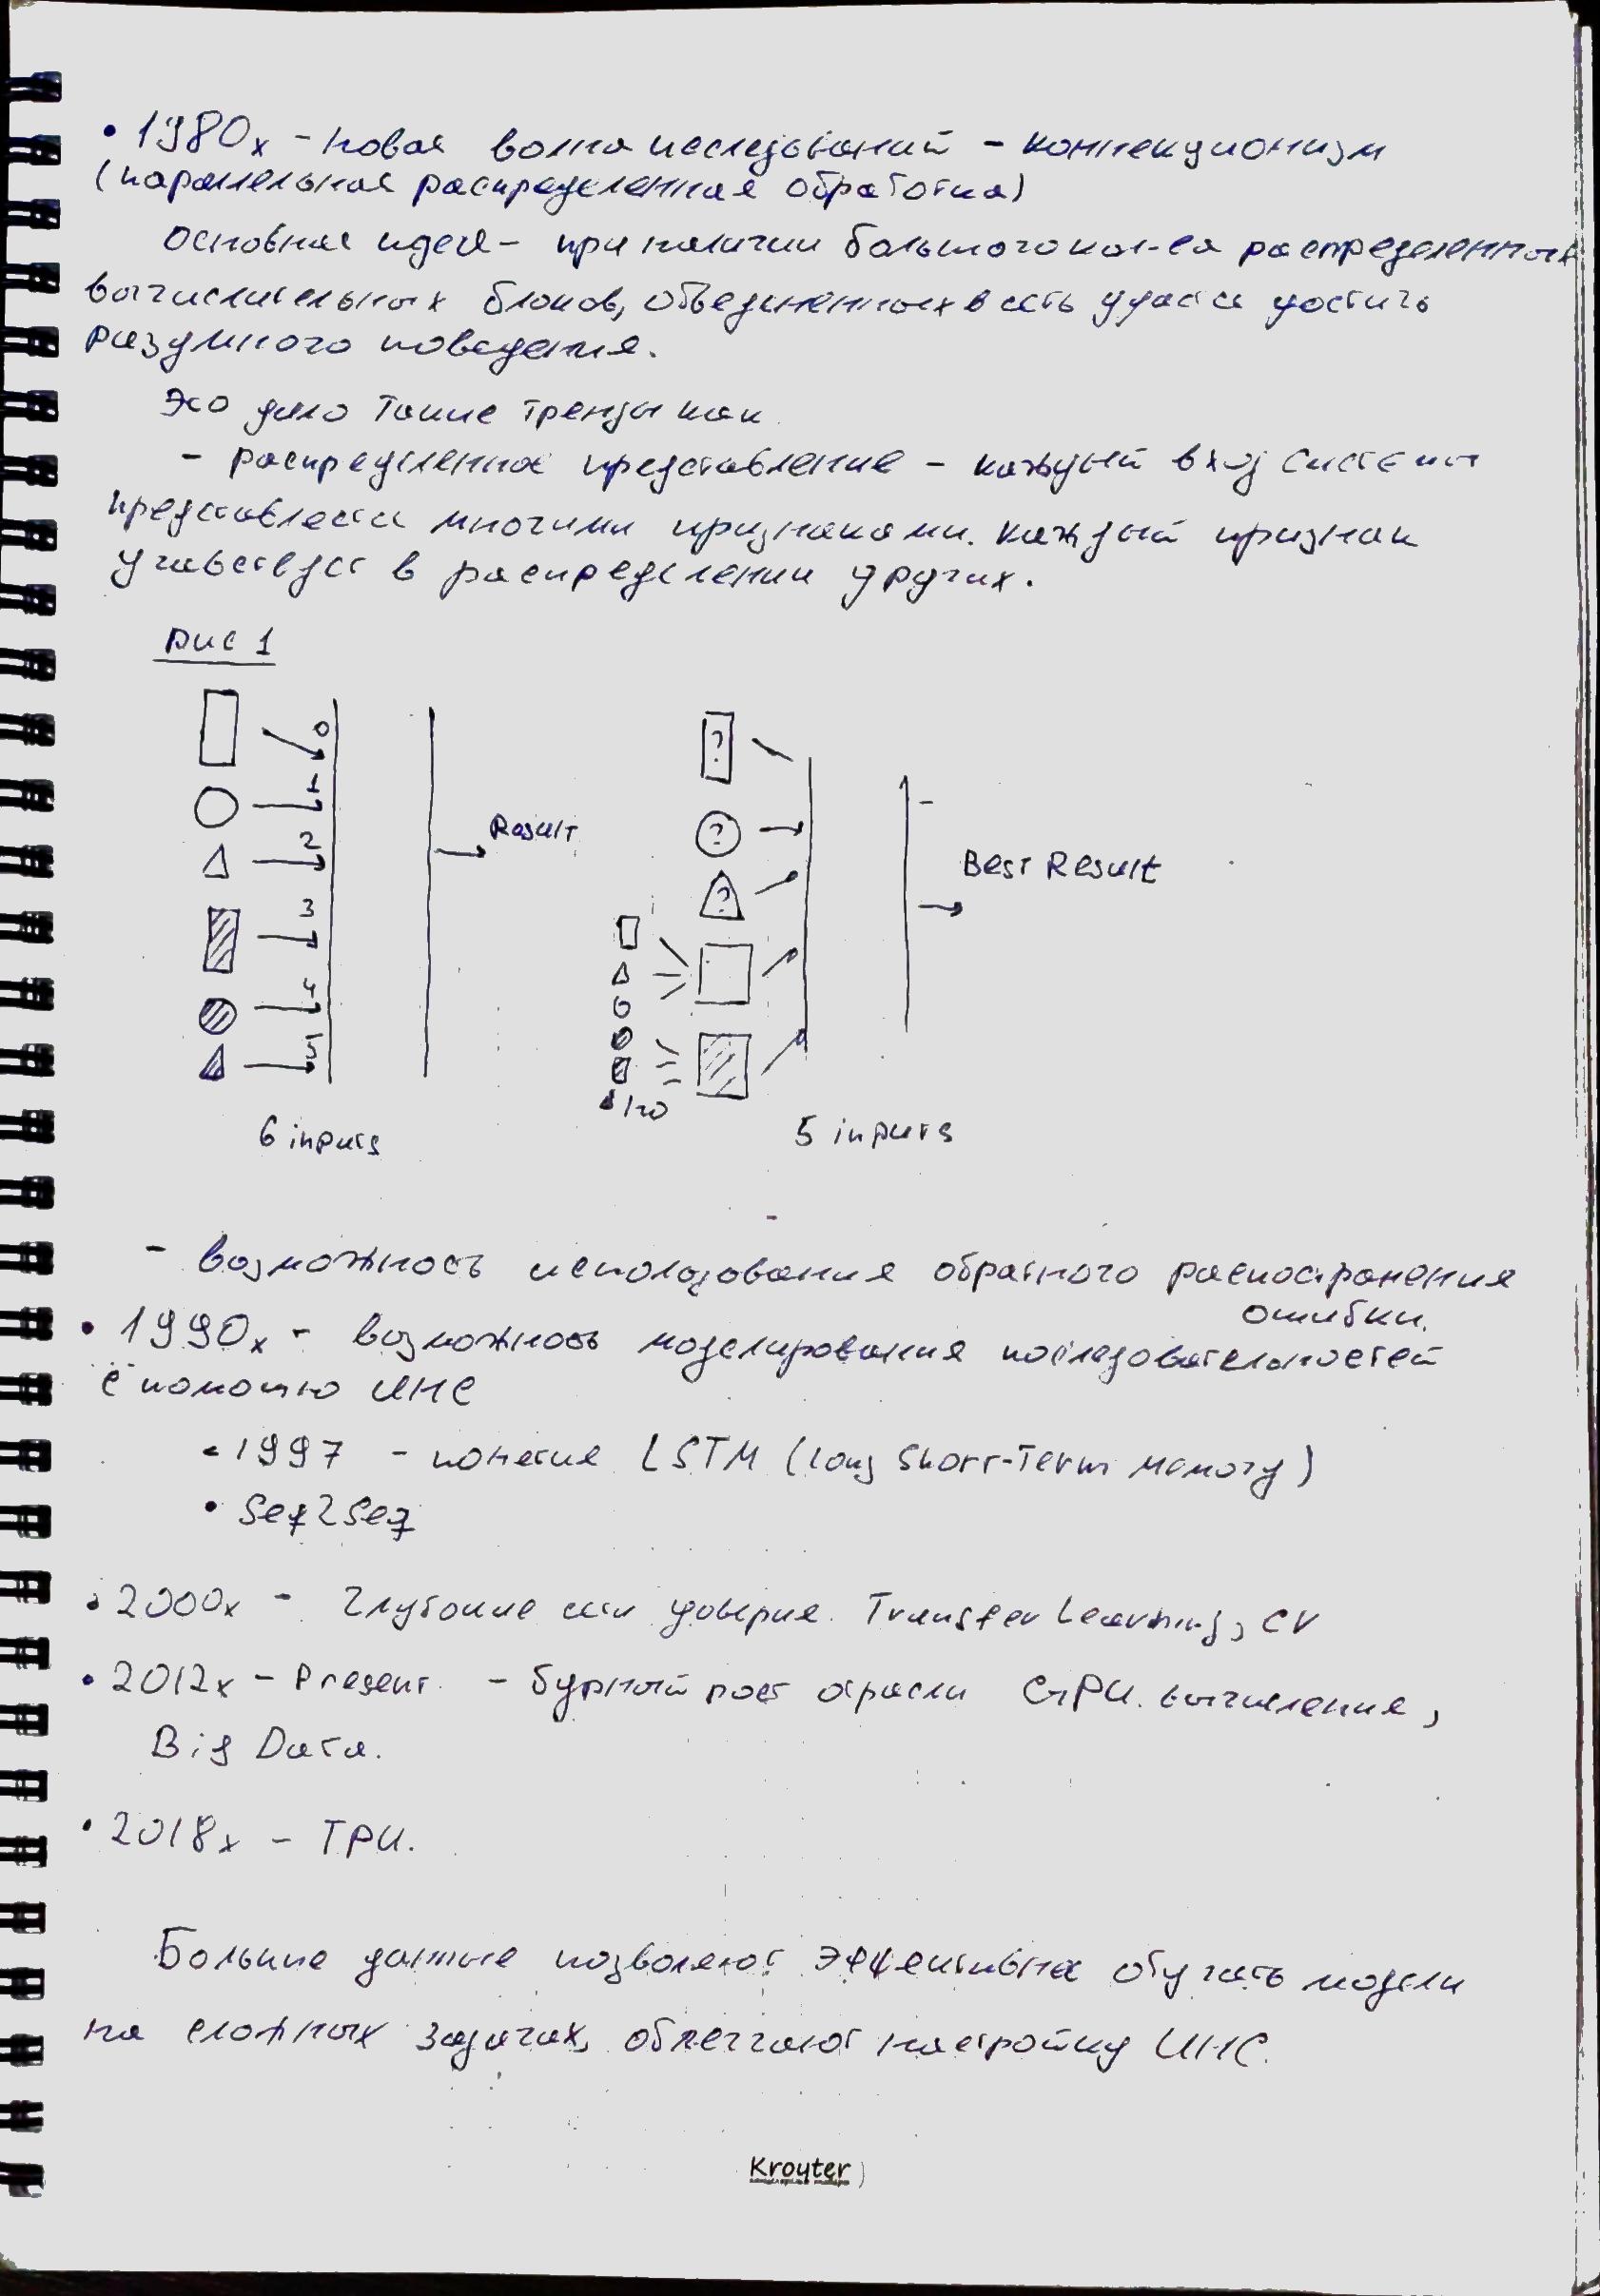 • 1980х – новая волна исследований – коннекционизм
(параллельная распределенная обработка)
Основная идея – при наличии большого кол-ва распределенных
вычислительных блоков, объединенных в сеть удастся достичь
разумного поведения.
Это дало такие тренды как
– распределенное представление – каждый вход системы
представляется многими признаками. каждый признак
учавствует в распределении других.
Рис 1
0
1
2
3
4
5
Result
6 inputs
?
?
?
Best Result
5 inputs
– возможность использования обратного распостранения
ошибки.
• 1990х – возможность моделирования последовательностей
с помощью ИНС
• 1997 – понятие LSTM (Long Short-Term Memory)
• Seq2Seq
• 2000х – Глубокие сети доверия. Transfer Learning, CV
• 2012х – Present. – бурный рост отрасли GPU. вычисления,
Big Data.
• 2018х – TPU.
Большие данные позволяют эффективнее обучать модели
на сложных задачах, облегчают настройку ИНС.
Kroyter